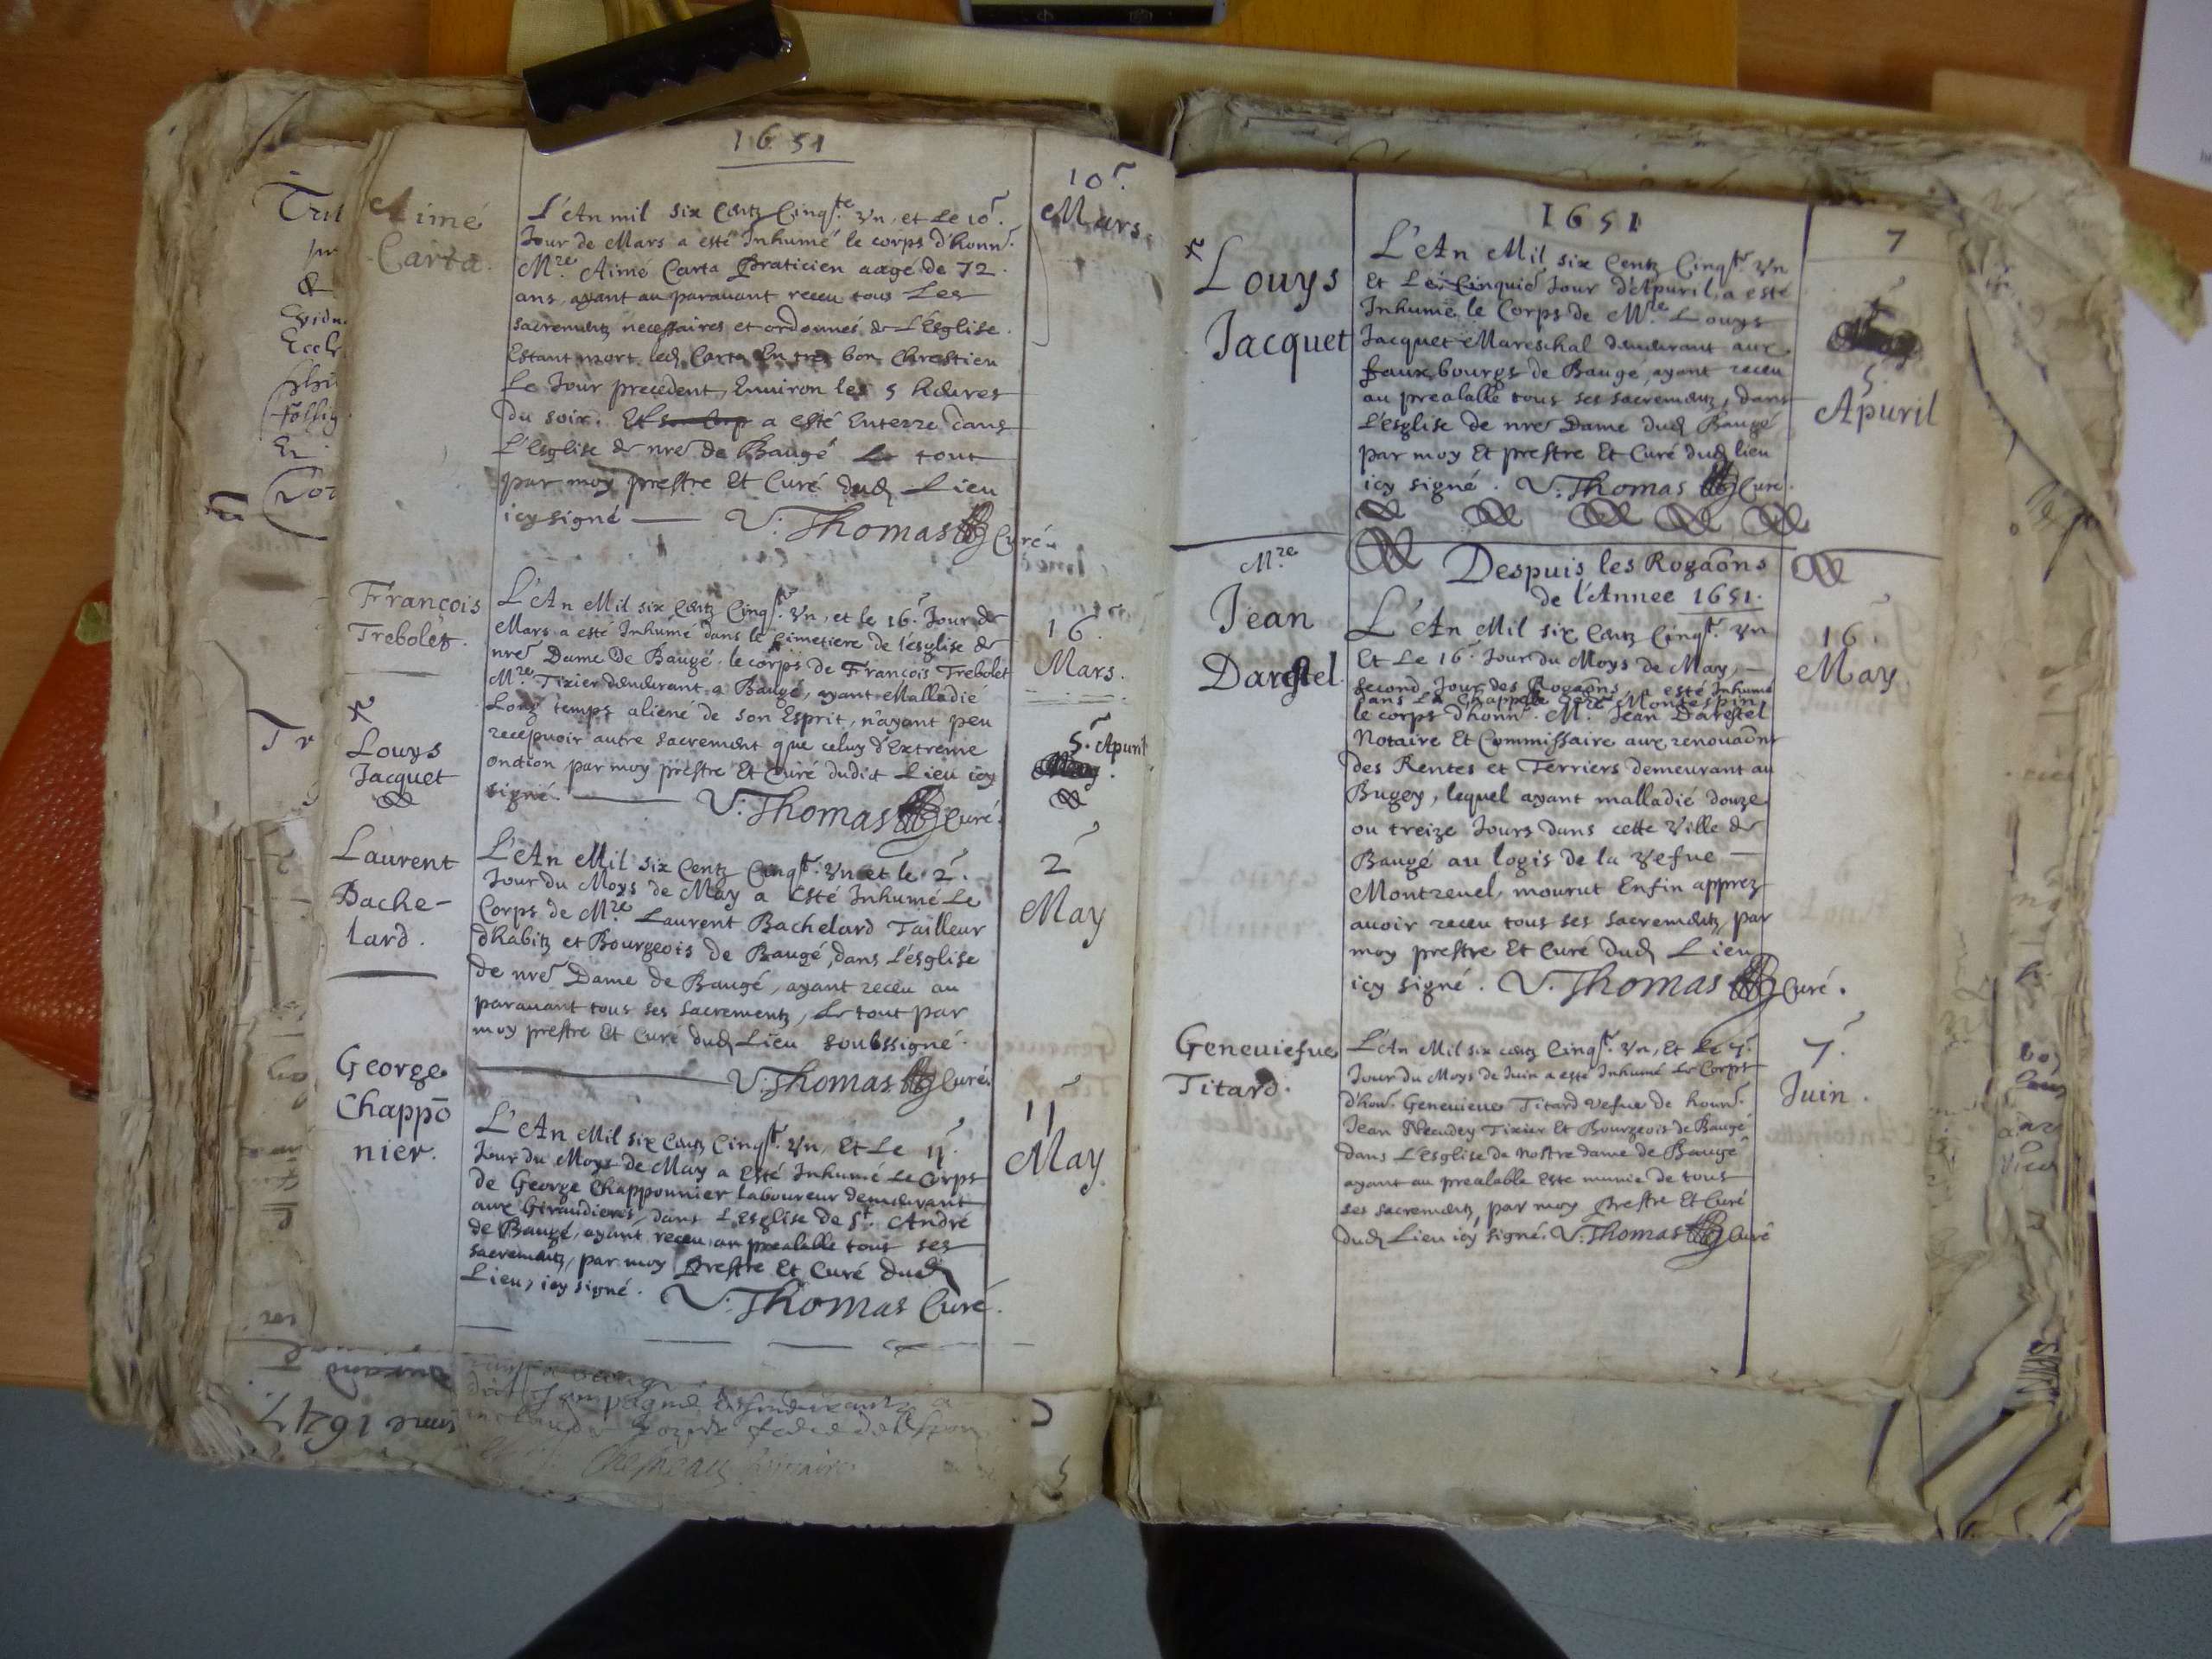 1651
Aimé
Carta.
10.
Mars.
L'An mil six Centz Cinq.te Vn, et Le 10.
Jour de Mars a esté Inhumé le corps d'honn.
M.re Aimé Carta Praticien aagé de 72
ans, ayant au parauant receu tous Les
sacrementz necessaires et ordonnés de L'Esglise.
Estant mort led. Carta En tres bon Chrestien
Le Jour precedent, Enuiron les 5 heures
du soir. Et a esté Enterré dans
L'Esglise de nre de Baugé Le tout
par moy prestre Et Curé dud. Lieu
icy signé — V. Thomas Curé.
François
Trebolet.
16.
Mars.
L'An Mil six Centz Cinq.te Vn, et le 16. Jour de
Mars a esté Inhumé dans le Cimetiere de l'esglise de
nre Dame De Baugé. le corps de François Trebolet
M.re Tixier demeurant a Baugé, ayant Malladié
Long temps aliené de son Esprit, n'ayant peu
recepuoir autre sacrement que celuy d'Extreme
onction, par moy prestre Et Curé dudict Lieu icy
signé. — V. Thomas Curé.
Louys
Jacquet
5. Apuril
Laurent
Bache-
lard.
2
May
L'An Mil six Centz Cinq.te Vn et le 2.
Jour du Moys de May a Esté Inhumé Le
Corps de M.re Laurent Bachelard Tailleur
d'habitz et Bourgeois de Baugé, dans L'esglise
de nre Dame de Baugé, ayant receu au
parauant tous ses sacrementz, Le tout par
moy prestre Et Curé dud. Lieu soubssigné.
V. Thomas Curé.
George
Chappō
nier.
11
May
L'An Mil six Centz Cinq.te Vn, Et Le 11.
Jour du Moys de May a Esté Inhumé Le Corps
de George Chapponnier Laboureur demeurant
aux Giraudieres, dans L'Esglise de S.t André
de Baugé, ayant receu au prealable tous ses
sacrementz, par moy Prestre Et Curé dud.
Lieu, icy signé. V. Thomas Curé.
1651
7
Louys
Jacquet
5.
Apuril
L'An Mil six Centz Cinq.te Vn
Et Le Cinquie Jour d'Apuril, a esté
Inhumé le Corps de M.re Louys
Jacquet Mareschal demeurant aux
faux bourgs de Baugé, ayant receu
au prealable tous ses sacrementz, dans
L'esglise de nre Dame dud. Baugé
par moy Et prestre Et Curé dud. lieu
icy signé. V. Thomas Curé.
M.re
Jean
Darestel.
16.
May
Despuis les Rogaōns
de l'Annee 1651.
L'An Mil six Centz Cinq.te Vn
Et Le 16. Jour du Moys de May, —
second Jour des Rogaōns, a esté Inhumé
dans La Chappelle de Montespin,
le corps d'honn. M. Jean Darestel
Notaire Et Commissaire aux renouaōns
des Rentes et Terriers demeurant au
Bugey, lequel ayant malladié douze
ou treize Jours dans cette Ville de
Baugé au logis de la Vefue —
Montreuel, mourut Enfin apprez
auoir receu tous ses sacrementz, par
moy prestre Et Curé dud. Lieu
icy signé. V. Thomas Curé.
Geneuiefue
Titard.
7.
Juin.
L'An Mil six centz Cinq.te Vn, Et Le 7.
Jour du Moys de Juin a esté Inhumé Le Corps
d'hon. Geneuieue Titard Vefue de honn.
Jean Tixier Et Bourgeois de Baugé
dans L'Esglise de Nostre dame de Baugé
ayant au prealable Esté munie de tous
ses sacrementz, par moy Prestre Et Curé
dud. Lieu icy signé. V. Thomas Curé